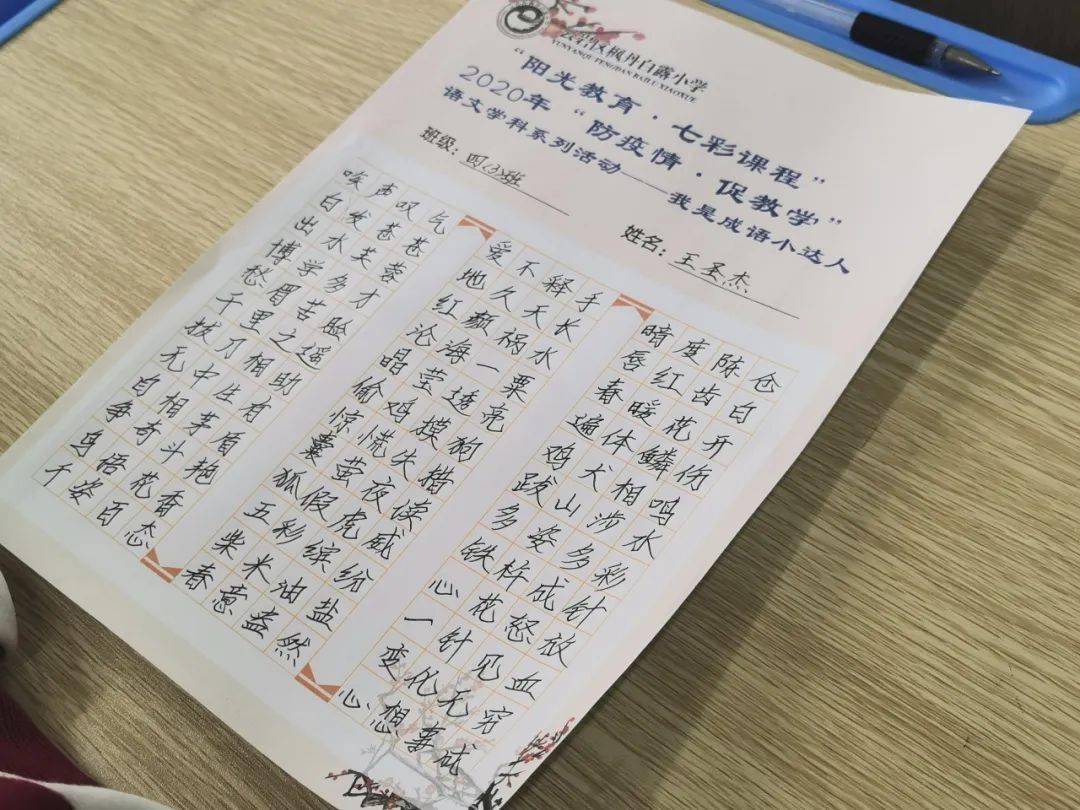 云岩区枫丹白露小学
YUNYANQU FENGDAN BAILU XIAOXUE
“阳光教育·七彩课程”
2020年“防疫情·促教学”
语文学科系列活动——我是成语小达人
班级：四(3)班 姓名：王 杰
唉声叹气
白发苍苍
出水芙蓉
博学多才
愁眉苦脸
千里之遥
拔刀相助
无中生有
自相茅盾
争奇斗艳
鸟语花香
千姿百态
爱不释手
地久天长
红颜祸水
沧海一粟
晶莹透亮
偷鸡摸狗
惊慌失措
囊萤夜读
狐假虎威
五彩缤纷
柴米油盐
春意盎然
暗度陈仓
唇红齿白
春暖花开
遍体鳞伤
鸡犬相鸣
跋山涉水
多姿多彩
铁杵成针
心花怒放
一针见血
变化无穷
心想事成